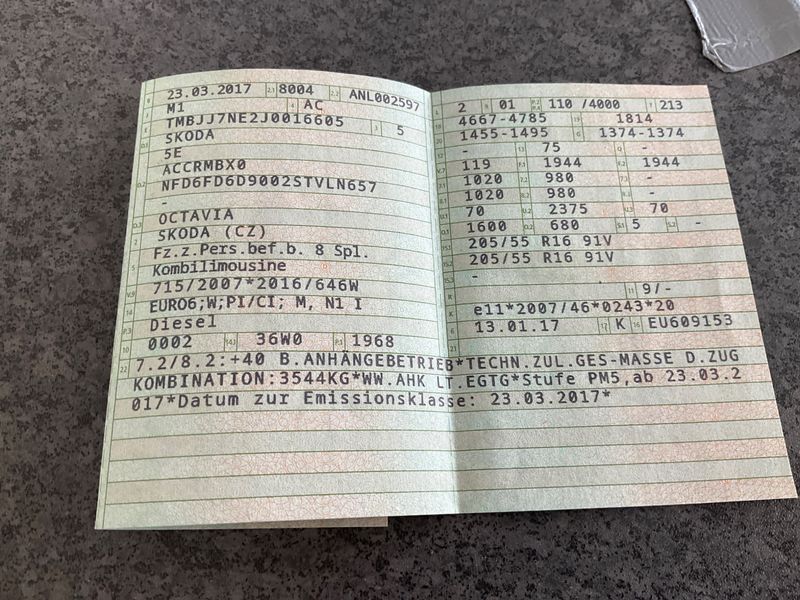 B 23.03.2017 2.1 8004 2.2 ANL002597
J M1 4 AC
E TMBJJ7NE2J0016605 3 5
D.1 SKODA
5E
D.2 ACCRMBX0
NFD6FD6D9002STVLN657
-
D.3 OCTAVIA
2 SKODA (CZ)
5 Fz.z.Pers.bef.b. 8 Spl.
Kombilimousine
V.9 715/2007*2016/646W
14 EURO6;W;PI/CI; M, N1 I
P.3 Diesel
10 0002 14.1 36W0 P.1 1968
L 2 9 01 P.2 P.4 110 /4000 T 213
18 4667-4785 19 1814
20 1455-1495 G 1374-1374
12 - 13 75 Q -
V.7 119 F.1 1944 F.2 1944
7.1 1020 7.2 980 7.3 -
8.1 1020 8.2 980 8.3 -
U.1 70 U.2 2375 U.3 70
O.1 1600 O.2 680 S.1 5 S.2 -
15.1 205/55 R16 91V
15.2 205/55 R16 91V
15.3 -
R 11 9/-
K e11*2007/46*0243*20
6 13.01.17 17 K 16 EU609153
21
22 7.2/8.2:+40 B.ANHÄNGEBETRIEB*TECHN.ZUL.GES-MASSE D.ZUG
KOMBINATION:3544KG*WW.AHK LT.EGTG*Stufe PM5,ab 23.03.2
017*Datum zur Emissionsklasse: 23.03.2017*